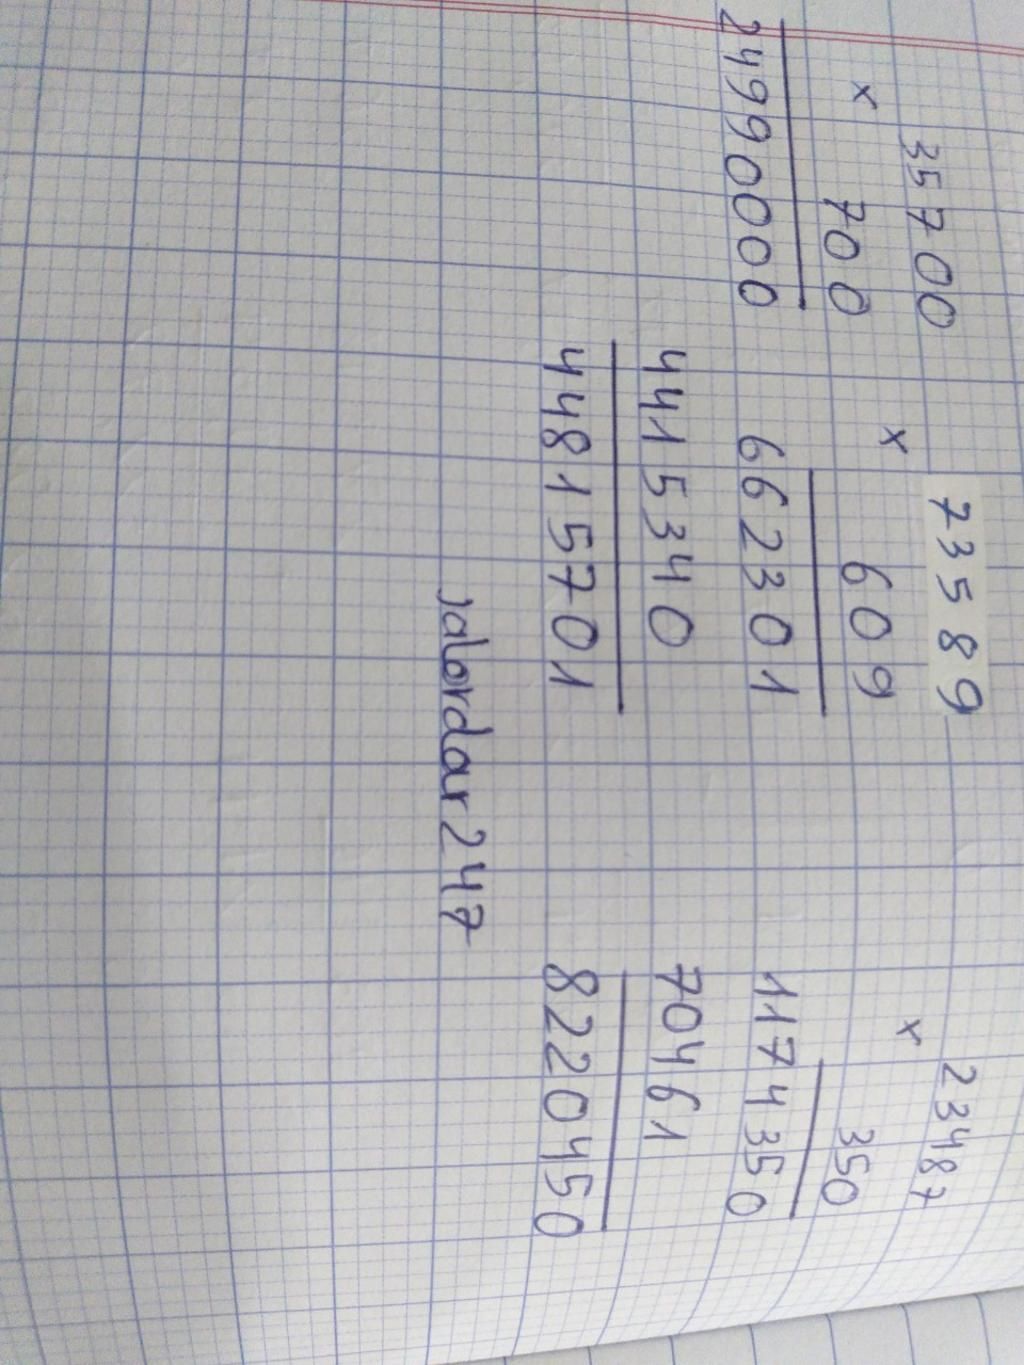 35700
× 700
24990000
73589
× 609
662301
4415340
44815701
23487
× 350
1174350
70461
8220450
jalordar247